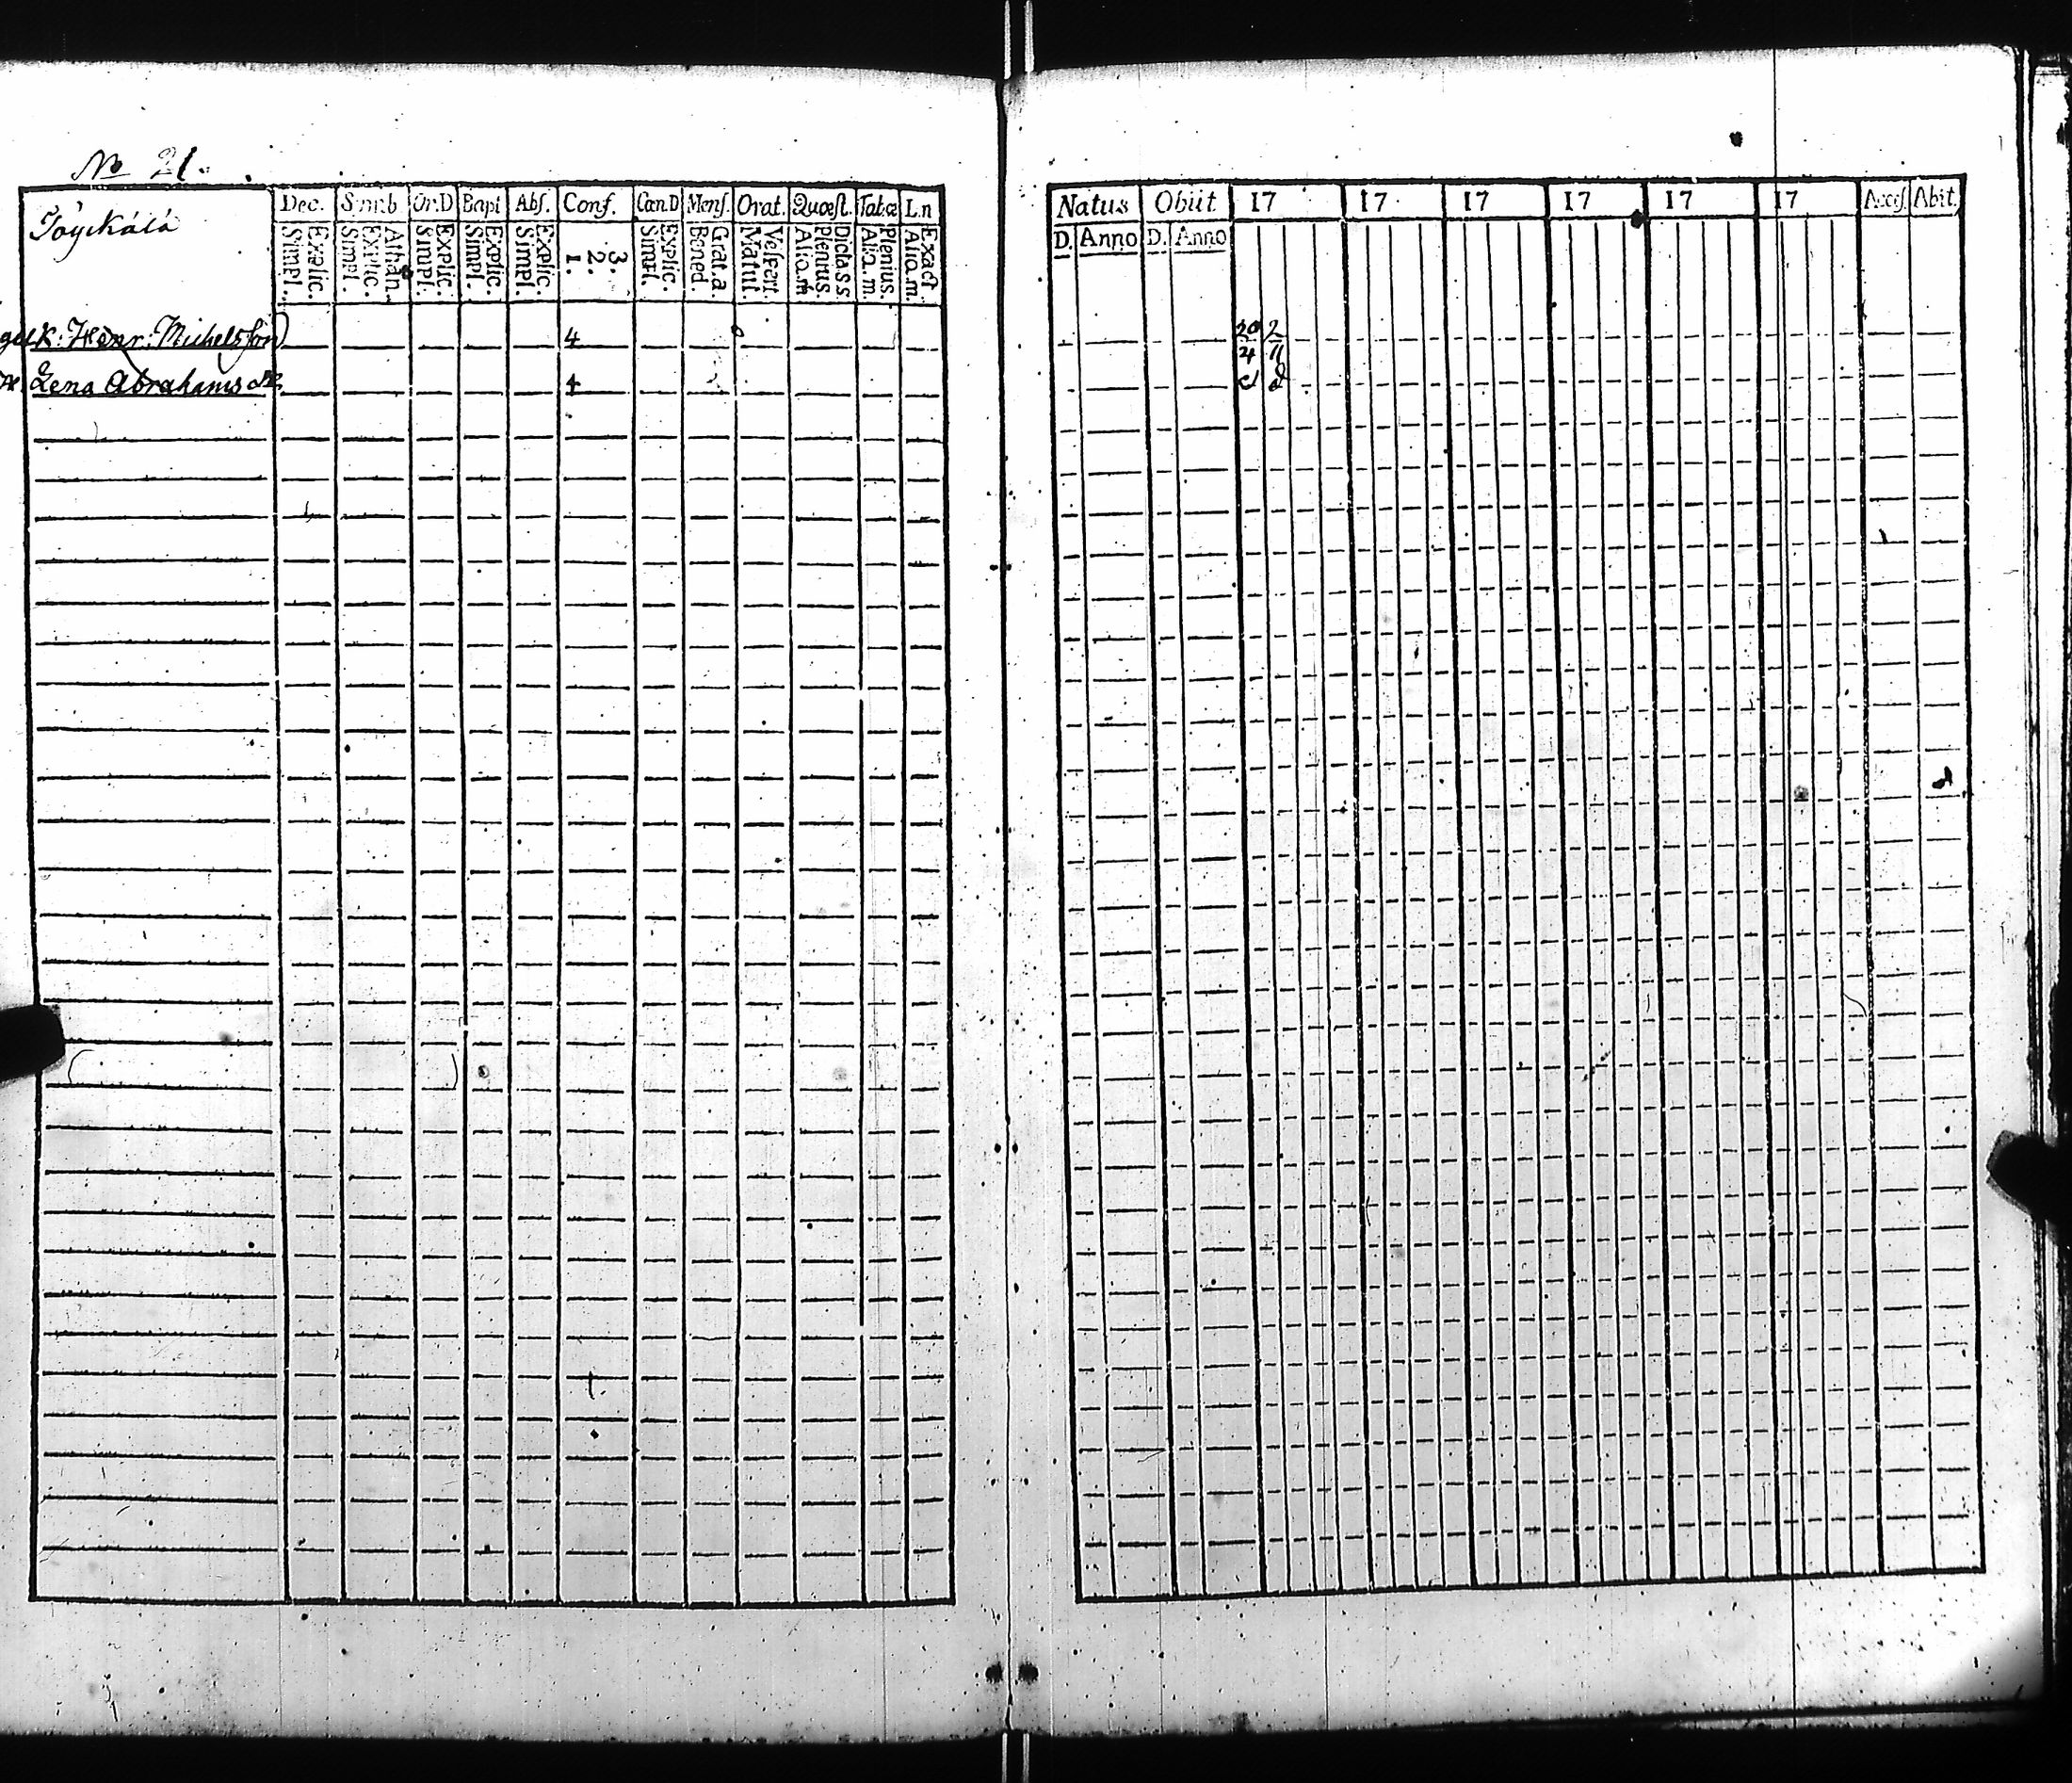 No 21.
Töyckälä
Dec. Symb. Or.D Bapt Abs. Conf. Cœn.D Mens. Orat. Quæst. Tab.œ L.n
Simpl. Explic. Simpl. Explic. Athan. Simpl. Explic. Simpl. Explic. Simpl. Explic. 1. 2. 3. Simpl. Explic. Bened Grat.a. Matut. Vespert. Alio.m Plenius. Dicta.s.s Alio.m. Plenius. Alio.m. Exact
K: Henr: Michelsson 4
Lena Abrahams dr 4
Natus Obiit 17 17 17 17 17 17 Access. Abit.
D. Anno D. Anno
20 2
4 11
d d